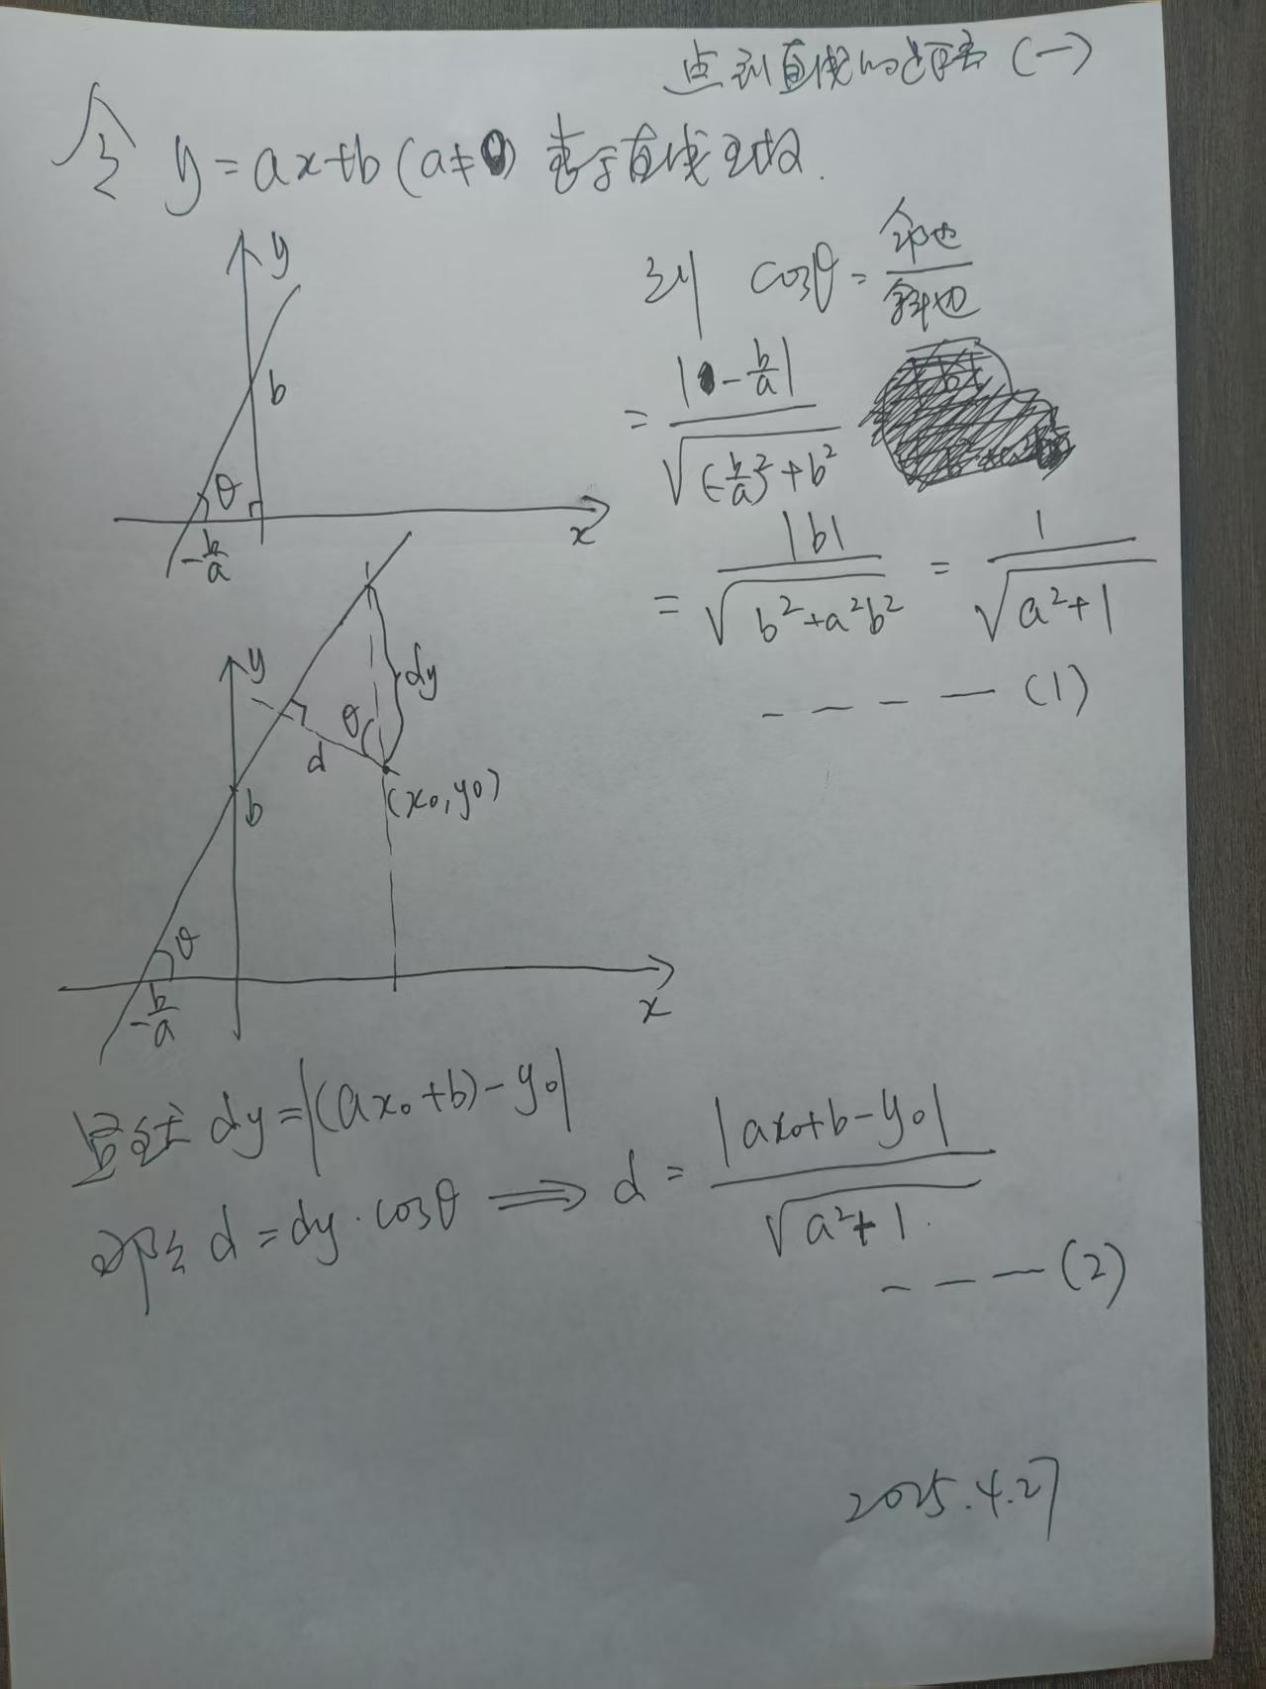 点到直线的距离 (一)
令 y = ax+b (a≠0) 表示直线函数.
y
b
θ
-b/a
x
则 cosθ = 邻边/斜边
= |-b/a| / √((-b/a)²+b²)
= |b| / √(b²+a²b²) = 1 / √(a²+1)
---- (1)
y
dy
θ
d
(x₀,y₀)
b
θ
-b/a
x
显然 dy = |(ax₀+b)-y₀|
那么 d = dy·cosθ ⟹ d = |ax₀+b-y₀| / √(a²+1)
---- (2)
2025.4.27